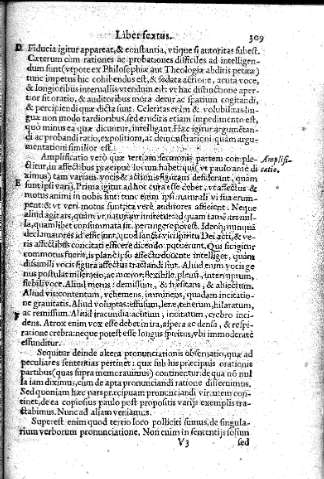 Liber sextus. 309
D Fiducia igitur appareat, & constantia, vtique si autoritas subest.
Cæterum cum rationes ac probationes difficiles ad intelligen-
dum sunt (vtpote ex Philosophiæ aut Theologiæ abditis petitæ)
tunc impetus hic cohibendus est, & sedata actione, acuta voce,
& longioribus interuallis vtendum est: vt hac distinctione aper-
tior sit oratio, & auditoribus mora detur ac spatium cogitandi,
& percipiendi quæ dicta sunt. Celeritas enim & volubilitas lin-
guæ non modo tardioribus, sed eruditis etiam impedimento est,
quo minus ea quæ dicuntur, intelligant. Hac igitur argumētan-
di ac probandi ratio, expositioni, ac demonstrationi quàm argu-
mentationi similior est.
Amplificatio verò quæ tertiam sermonis partem comple- Amplifi-
ctitur, in affectibus præcipuè locum habet: qui (vt paulo ante di- catio.
ximus) tam variam vocis & actionis figuram desiderant, quàm
E sunt ipsi varij. Prima igitur ad hoc cura esse debet, vt affectus &
motus animi in nobis sint: tunc enim ipsi naturali vi in
& vt veri motus suapte voce auditores afficient. Neque
aliud agitare, quàm naturam imitetur: ad quam tamen
la, quamlibet consummata sit, peruenire potest. Idem
declamatores ad esse iam, quod sancti viri spiritu Dei acti, & ve-
ris affectibus concitati efficere dicendo potuerunt. Qui
commotus fuerit, is planè, ipso affectu docente intelliget, quàm
dissimili vocis figura affectus tractandi sint. Aliud enim vocis ge-
nus postulat miseratio, ac mœror, flexibile, plenum, interruptum,
flebili voce. Aliud metus: demissum, & hæsitans, & abiectum.
Aliud vis contentum, vehemens, imminens, quadam incitatio-
ne grauitatis. Aliud voluptas effusum, lene, tenerum, hilaratum,
ac remissum. Aliud iracundia acutum, incitatum, crebro inci-
dens. Atrox enim vox esse debet in ira, aspera ac densa, & respi-
ratione crebra: neque potest esse longus spiritus, vbi immoderatè
effunditur.
Sequitur deinde altera pronunciationis obseruatio, quæ ad
peculiares sententias pertinet: quæ sub his præcipuis orationis
partibus (quas supra memorauimus) continentur: de qua nō nul
la iam diximus, cùm de apta pronunciandi ratione differuimus.
Sed quoniam hæc pars præcipuam pronunciandi virtutem con-
tinet, de ea copiosius paulo post propositis varijs exemplis tra-
ctabimus. Nunc ad aliam veniamus.
Superest enim quod tertio loco polliciti sumus, de singula-
rium verborum pronunciatione. Non enim in sententijs solum
V 3 sed